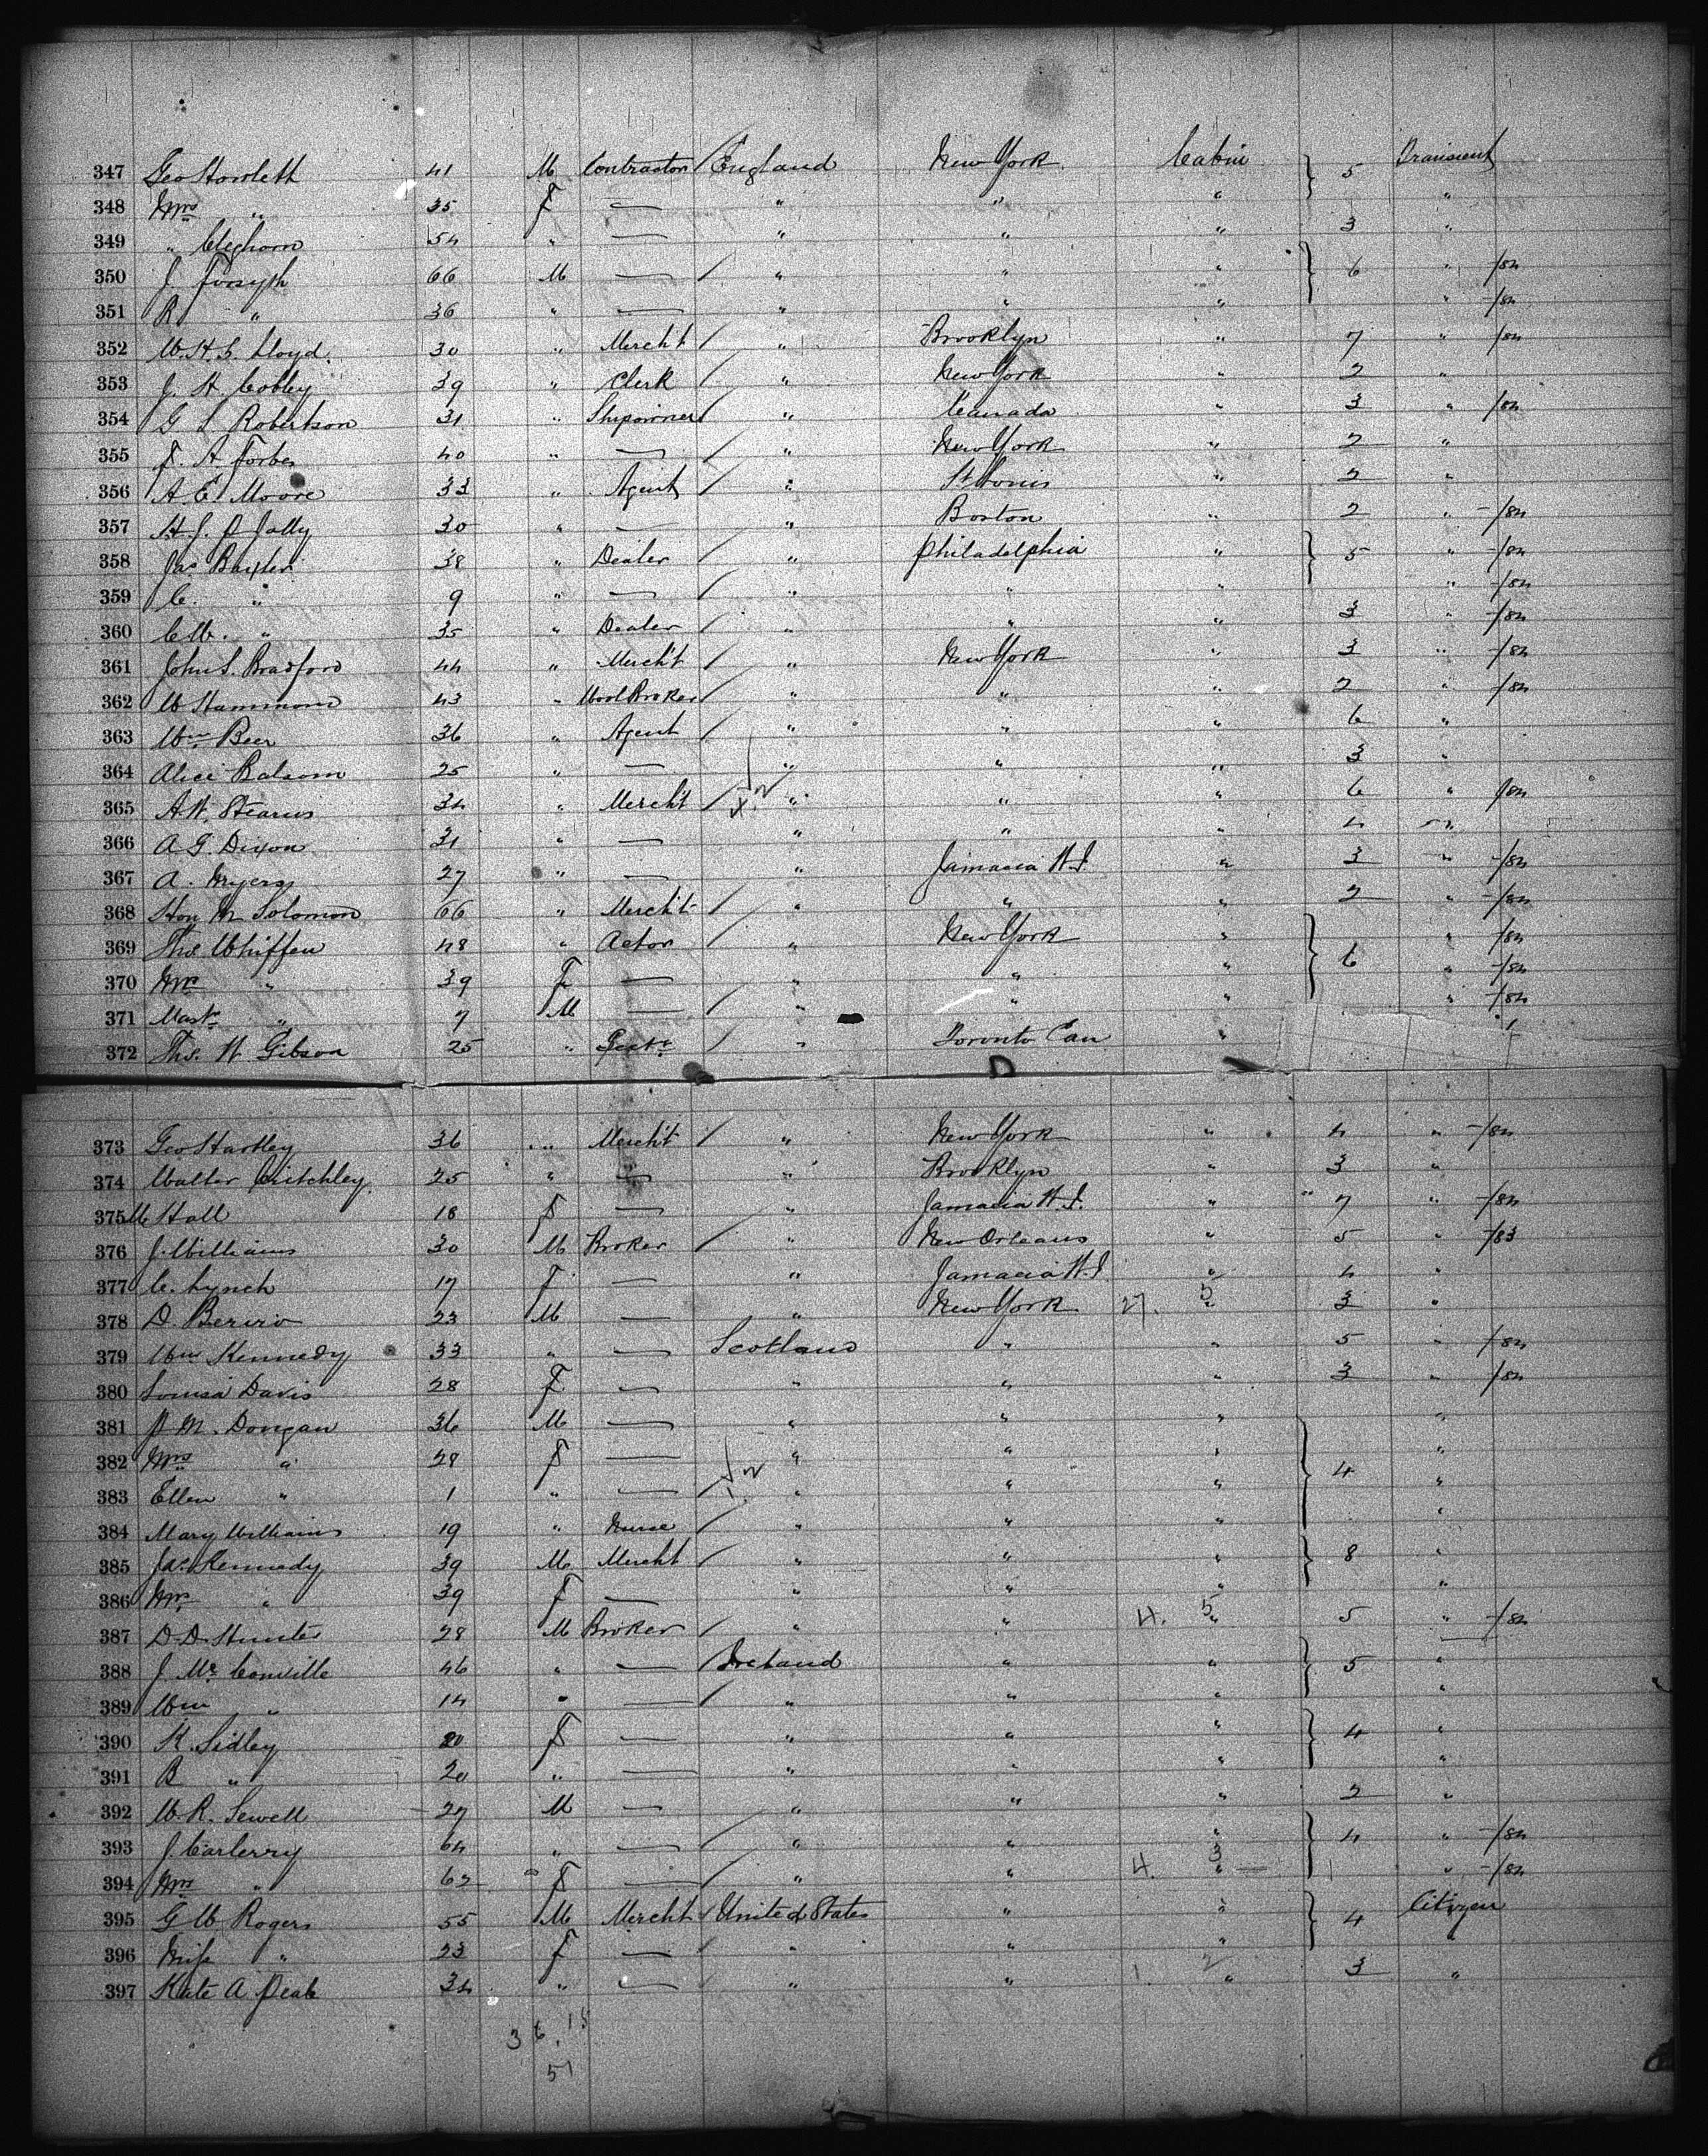 347 Geo Howlett 41 M Contractor / England New York Cabin } 5 Transient
348 Mrs " 35 F — " " " "
349 " Cleghorn 54 " — " " " 3 "
350 J. Forsyth 66 M — / " " " } 6 " /84
351 R " 36 " — " " " " /84
352 W. H. S. Lloyd. 30 " Mercht / " Brooklyn " 7 " /84
353 J. H. Cobley 39 " Clerk / " New York " 2 "
354 G S Robertson 31 " Shipowner / " Canada " 3 " /84
355 F. A. Forbes 40 " — / " New York " 2 "
356 A E Moore 33 " Agent / " St Louis " 2 "
357 H. J. P Jolly 30 " — " Boston " 2 " /84
358 Jas Baxter 38 " Dealer / " Philadelphia " } 5 " /84
359 C. " 9 " — / " " " " /84
360 C W. " 35 " Dealer / " " " 3 " /84
361 John S. Bradford 44 " Mercht / " New York " 3 " /84
362 W Hammond 43 " Wool Broker / " " " 2 " /84
363 Wm Beer 36 " Agent / " " " 6 "
364 Alice Balsom 25 " — " " " 3 "
365 A. W. Stearns 34 " Mercht / " " " 6 " /84
366 A. G. Dixon 31 " — " " " 4 "
367 A. Myers 27 " — " Jamacia W. I. " 3 " /84
368 Hon M Solomon 66 " Mercht / " " " 2 " /84
369 Thos. Whiffen 48 " Actor / " New York " } 6 " /84
370 Mrs " 39 F — " " " " /84
371 Mastr " 7 M — / " " " " /84
372 Thos. W. Gibson 25 " / " Toronto Can "
373 Geo Hartley 36 " Mercht / " New York " 4 " /84
374 Walter Critchley 25 " — " Brooklyn " 3 "
375 M Hall 18 F — " Jamacia W. I. " 7 " /84
376 J. Williams 30 M Broker / " New Orleans " 5 " /83
377 C. Lynch 17 F — " Jamacia W. I. " 4 "
378 D. 23 M — " New York 27. 5 " 3 "
379 Wm Kennedy 33 " — Scotland " " 5 " /84
380 Louisa Davis 28 F — " " " 3 " /84
381 P M. Dongan 36 M — " " " "
382 Mrs " 28 F — " " " } 4 "
383 Ellen " 1 " — / " " " "
384 Mary Williams 19 " Nurse / " " " "
385 Jas. Kennedy 39 M Mercht / " " " } 8 "
386 Mrs " 39 F — " " " "
387 D. D. Hunter 28 M Broker / " " 4. 5 " 5 " /84
388 J. Mc Conville 46 " — / Ireland " " } 5 "
389 Wm " 14 " — / " " " "
390 K. Sidley 20 F — " " " } 4 "
391 B " 20 " — " " " "
392 W. R. Sewell 27 M — / " " " 2 "
393 J. Carberry 64 " — / " " " } 4 " /84
394 Mrs " 62 F — / " " 4. 3 " " /84
395 G W Rogers 55 M Mercht / United States " " } 4 Citizen
396 Miss " 23 F — / " " " "
397 Kate A Peak 34 " — " " 1. 2 " 3 "
36. 15
51